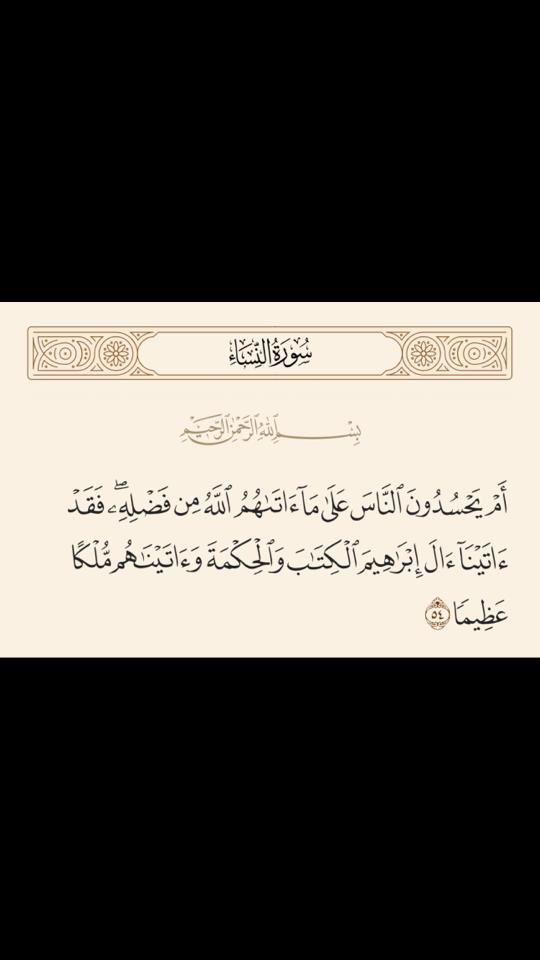 سُورَةُ النِّسَاءِ
بِسْمِ ٱللَّهِ ٱلرَّحْمَٰنِ ٱلرَّحِيمِ
أَمْ يَحْسُدُونَ ٱلنَّاسَ عَلَىٰ مَآ ءَاتَىٰهُمُ ٱللَّهُ مِن فَضْلِهِۦۖ فَقَدْ
ءَاتَيْنَآ ءَالَ إِبْرَٰهِيمَ ٱلْكِتَٰبَ وَٱلْحِكْمَةَ وَءَاتَيْنَٰهُم مُّلْكًا
عَظِيمًا ٥٤